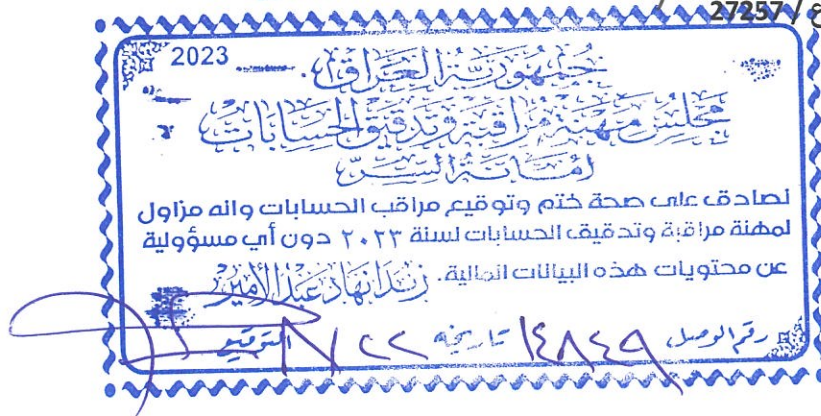 ع / 27257
2023
جمهورية العراق
مجلس مهنة مراقبة وتدقيق الحسابات
امانة السر
نصادق على صحة ختم وتوقيع مراقب الحسابات وانه مزاول
لمهنة مراقبة وتدقيق الحسابات لسنة ٢٠٢٣ دون أي مسؤولية
عن محتويات هذه البيانات المالية. رندا نهاد عبد الأمير
رقم الوصل ١٤٨٤٩ تاريخه ٢٢ التوقيع